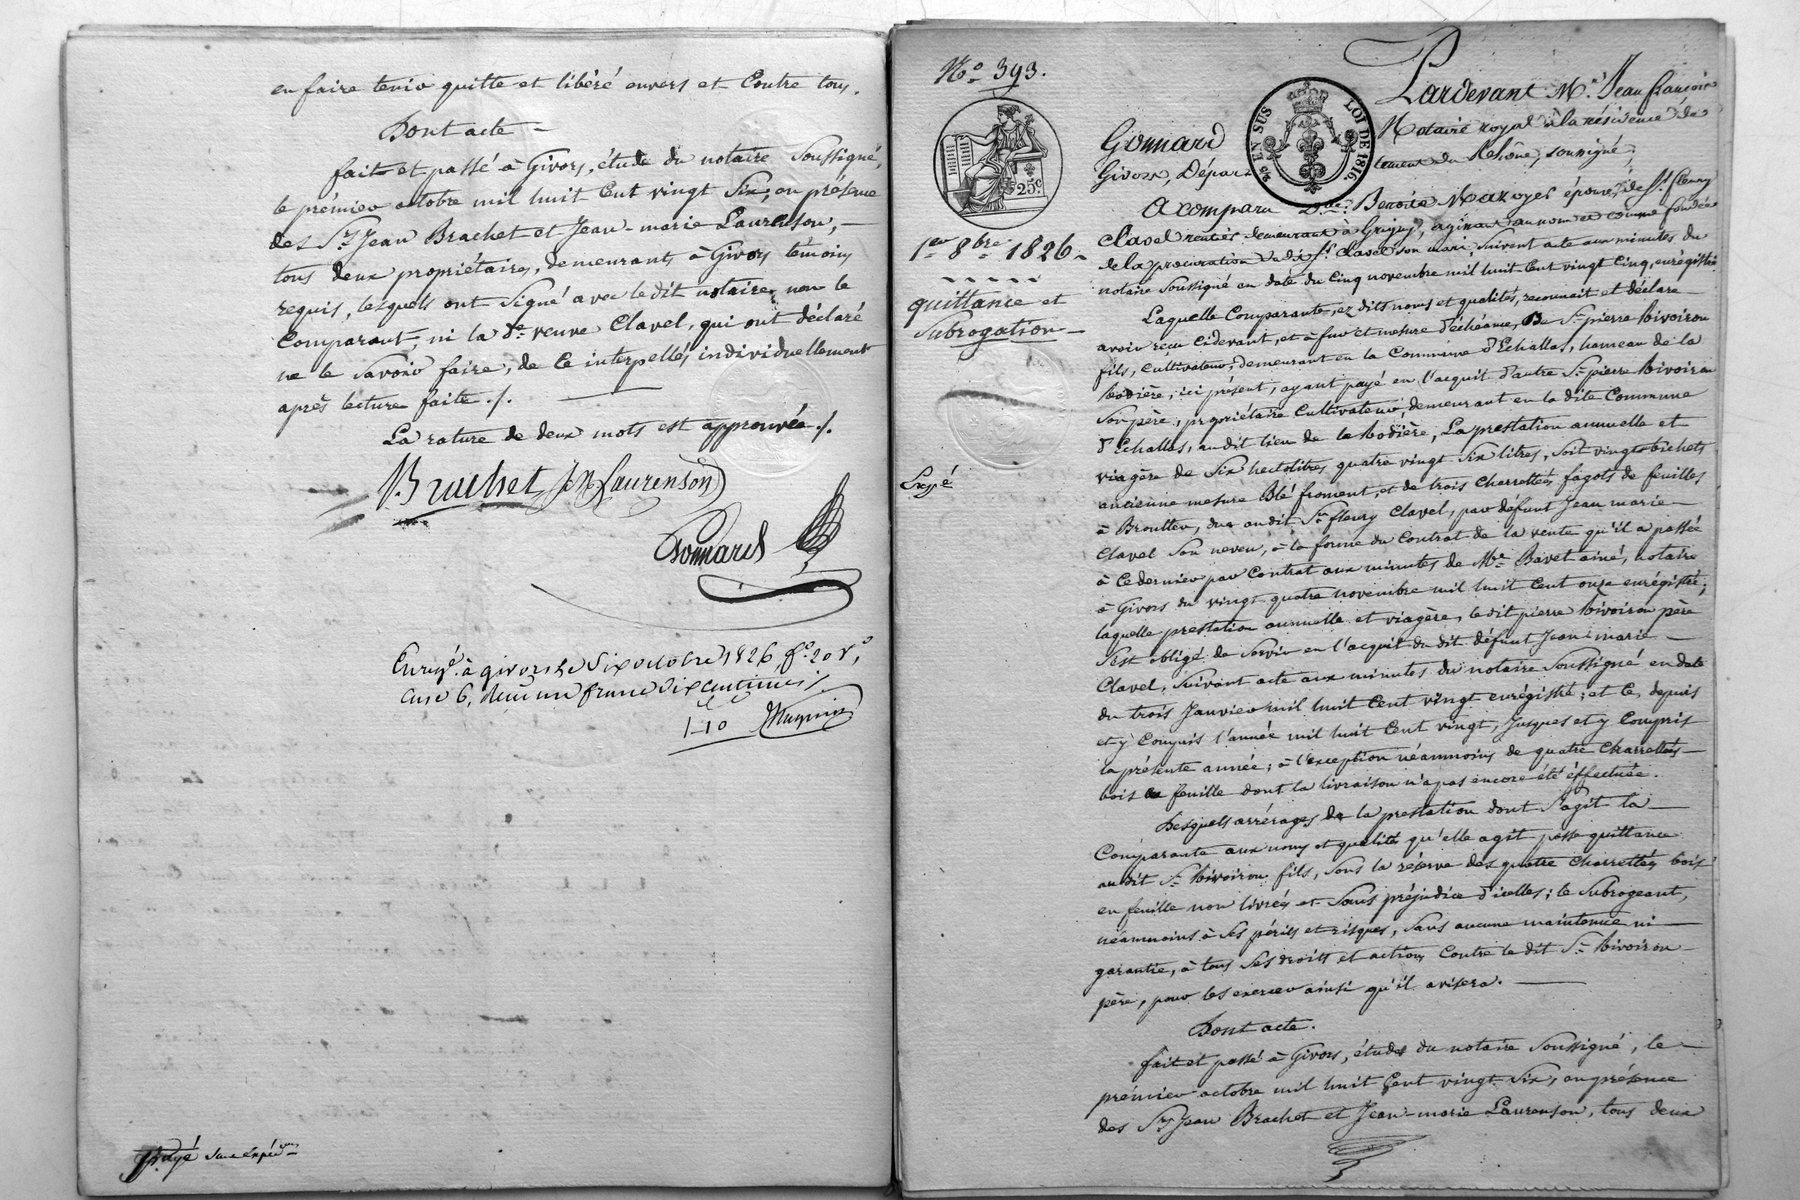 en faire tenir quitte et libéré envers et Contre tous.
Dont acte —
fait et passé à Givors, étude du notaire Soussigné,
le prémier octobre mil huit Cent vingt Six, en présence
des Srs Jean Brachet et Jean-marie Laurenson, —
tous deux propriétaires, demeurants à Givors témoins
requis, lesquels ont Signé avec le dit notaire, non le
Comparant, ni la De. veuve Clavel, qui ont déclaré
ne le Savoir faire, de Ce interpellés individuellement
après lecture faite ./.
La rature de deux mots est approuvée ./.
Brachet JM Laurenson
Gonnard
Enregé. à givors le Six octobre 1826, fo. 20 Vo,
Case 6, Reçu un franc dix centimes ./.
1-10
Payé
No. 393.
25c
EN SUS
LOI DE 1816.
1er 8bre. 1826.
quittance et
Subrogation —
Expé
Pardevant Me. Jean François
Gonnard Notaire royal à la résidence de
Givors, Département du Rhône, soussigné,
A comparu De. Benoite Mazoyer épouse de Sr. fleury
Clavel rentier demeurant à Grigny, agissant au nom et comme fondée
de la procuration du dit Sr. Clavel son mari, Suivant acte aux minutes du
notaire Soussigné en date du Cinq novembre mil huit Cent vingt Cinq, enrégistré.
Laquelle Comparante, ez dits noms et qualités, reconnait et déclare
avoir reçu Cidevant, et à fur et mesure d'échéance, De Sr. pierre Rivoiron
fils, Cultivateur, demeurant en la Commune d'Echallas, hameau de la
Rodière, ici présent, ayant payé en l'acquit d'autre Sr. pierre Rivoiron
Son père, propriétaire Cultivateur, demeurant en la dite Commune
d'Echallas, au dit lieu de la Rodière, La prestation annuelle et
viagère de Six hectolitres quatre vingt Six litres, Soit vingt bichets
ancienne mesure Blé froment, et de trois charrettes, fagots de feuilles
à Broutter, due au dit Sr. fleury Clavel, par défunt Jean marie —
Clavel Son neveu, à la forme du Contrat de la vente qu'il a passée
à Ce dernier par Contrat aux minutes de Mre. Bavet ainé, notaire
à Givors du vingt quatre novembre mil huit Cent onze enrégistré;
laquelle prestation annuelle et viagère, le dit pierre Rivoiron père
S'est obligé de Servir en l'acquit du dit défunt Jean marie —
Clavel, Suivant acte aux minutes du notaire Soussigné en date
du trois Janvier mil huit Cent vingt enrégistré; et Ce, depuis
et y Compris l'année mil huit Cent vingt, Jusques et y Compris
la présente année; à l'exception néammoins de quatre Charrettes —
bois en feuille dont la livraison n'a pas encore été éffectuée.
Desquels arrérages de la prestation dont S'agit la —
Comparante aux noms et qualités qu'elle agit passe quittance
au dit Sr. Rivoiron fils, Sous la réserve des quatre Charrettes bois
en feuille non livrés et Sans préjudice d'icelles; le Subrogeant,
néammoins à Ses périls et risques, Sans aucune maintenue ni —
garantie, à tous Ses droits et actions Contre le dit Sr. Rivoiron
père, pour les exercer ainsi qu'il avisera. —
Dont acte.
fait et passé à Givors, étude du notaire Soussigné, le —
prémier octobre mil huit Cent vingt Six, en présence
des Srs Jean Brachet et Jean-marie Laurenson, tous deux